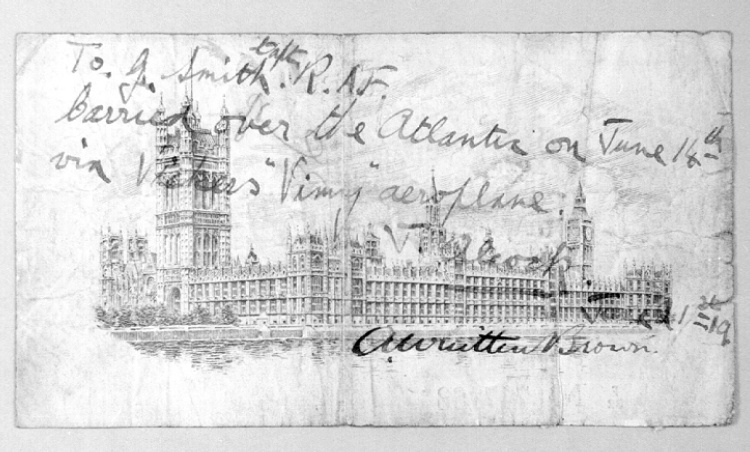 To. J. Smith Capt. R.A.F.
Carried over the Atlantic on June 14th
via Vickers "Vimy" aeroplane.
J. Alcock.
June 21st 19
A Whitten Brown.